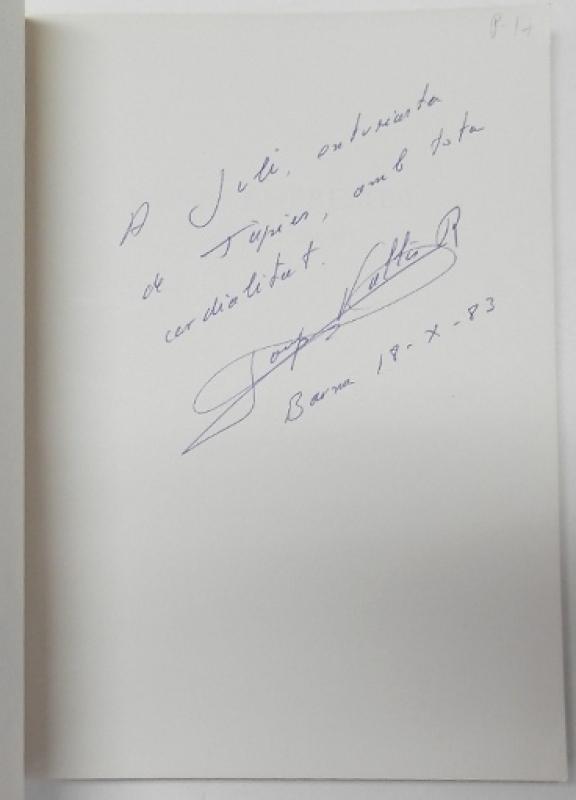 A Juli, entusiasta
de Tàpies, amb tota
cordialitat.
Josep Vallès R
Barna 18-X-83